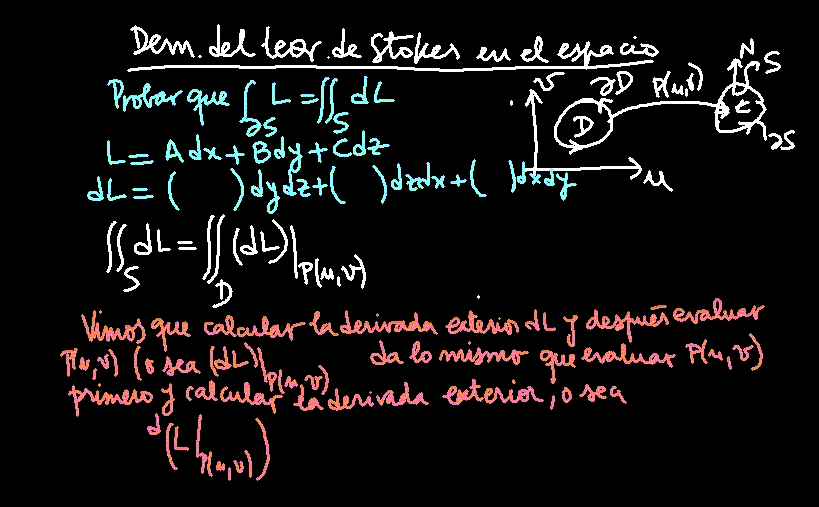 Dem. del teor. de Stokes en el espacio
Probar que ∫_∂S L = ∬_S dL
L = Adx + Bdy + Cdz
dL = (   )dydz + (   )dzdx + (   )dxdy
v ∂D D P(u,v) N S ∂S u
∬_S dL = ∬_D (dL)|_P(u,v)
Vimos que calcular la derivada exterior dL y después evaluar
P(u,v) (o sea (dL)|_P(u,v) da lo mismo que evaluar P(u,v)
primero y calcular la derivada exterior, o sea
d(L|_P(u,v))